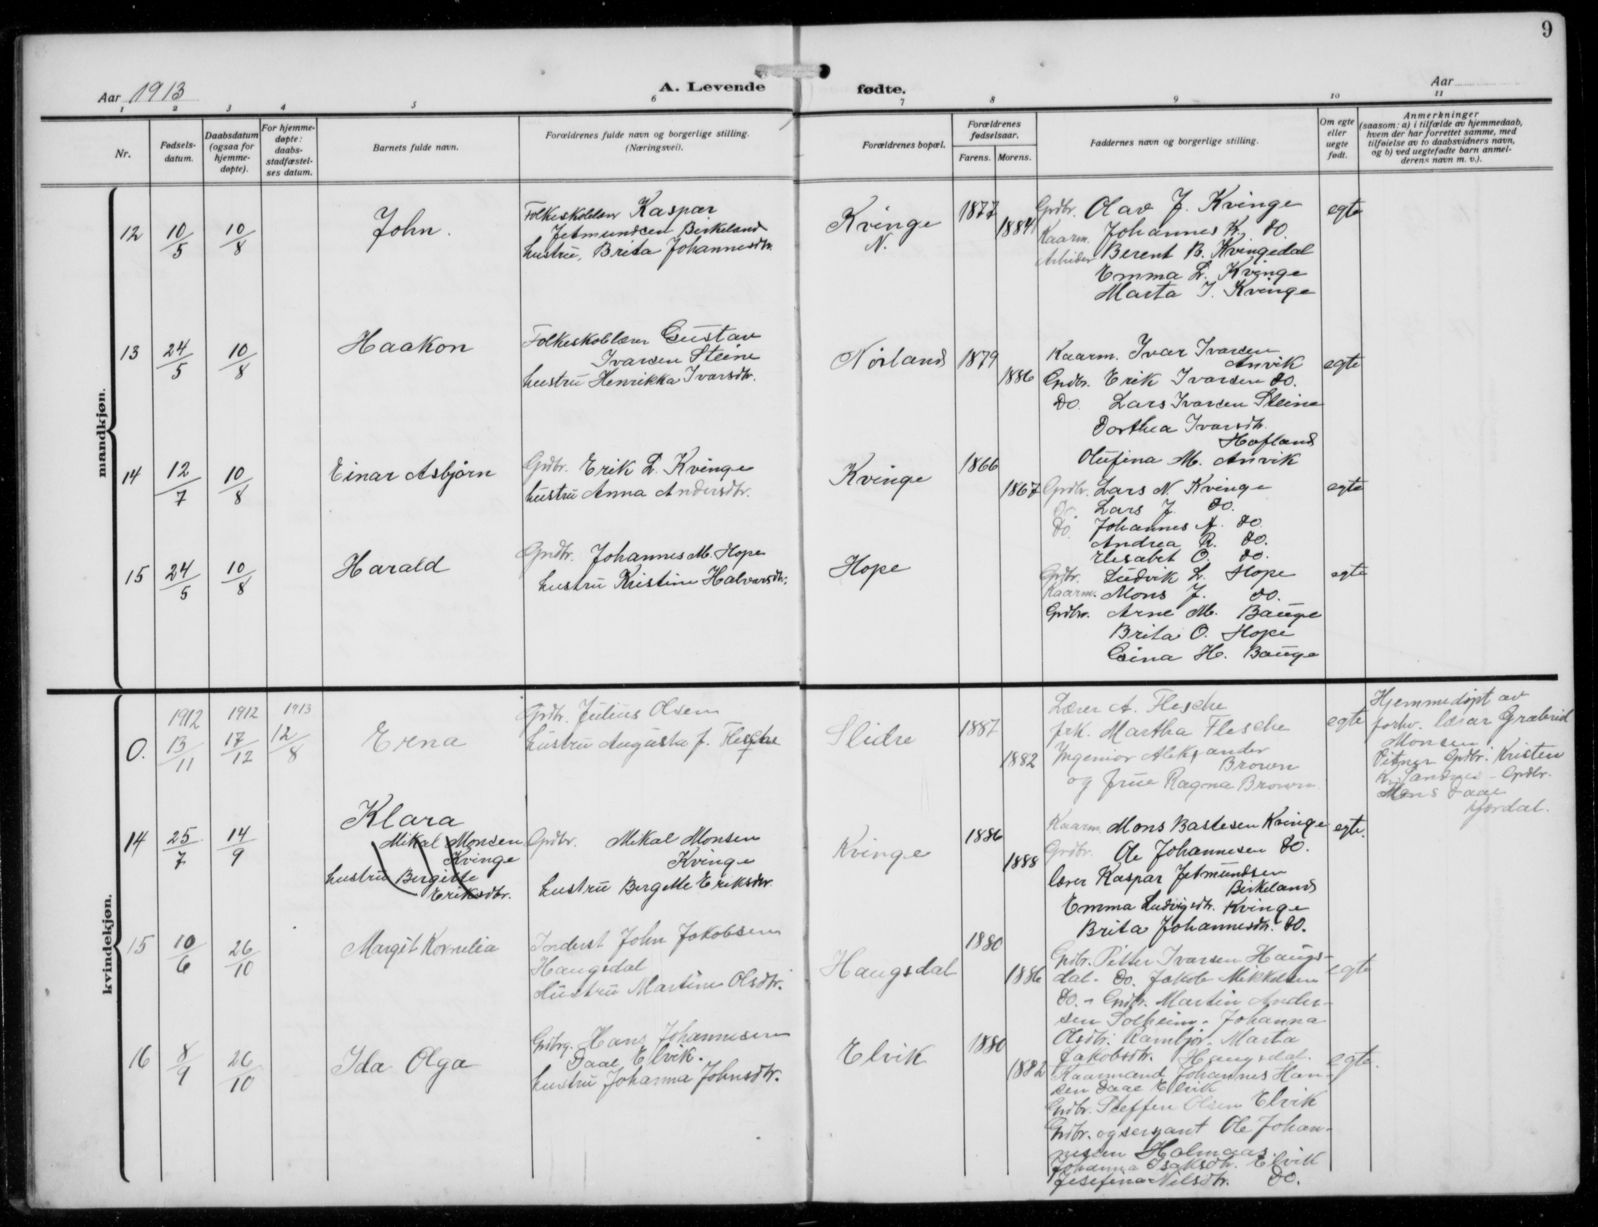 9
Aar 1913
A. Levende fødte.
Aar
1 2 3 4 5 6 7 8 9 10 11
Nr.
Fødsels-
datum.
Daabsdatum
(ogsaa for
hjemme-
døpte).
For hjemme-
døpte:
daabs-
stadfæstel-
ses datum.
Barnets fulde navn.
Forældrenes fulde navn og borgerlige stilling.
(Næringsvei).
Forældrenes bopæl.
Forældrenes
fødselsaar.
Farens. Morens.
Faddernes navn og borgerlige stilling.
Om egte
eller
uegte
født.
Anmerkninger
(saasom: a) i tilfælde av hjemmedaab,
hvem der har forrettet samme, med
tilføielse av to daabsvidners navn,
og b) ved uegtefødte barn anmel-
derens navn m. v.).
mandkjøn.
12 10/5 10/8
John.
Folkeskolelærer Kaspar
Jetmundsen Birkeland
hustru, Brita Johannesdtr.
Kvinge
N.
1877
1884
Grdbr. Olav J. Kvinge
Kaarm. Johannes K. do.
Arbeider Berent B. Kvingedal
Emma L. Kvinge
Marta J. Kvinge
egte
13 24/5 10/8
Haakon
Folkeskolelærer Gustav
Ivarsen Steine
hustru Henrikka Ivarsdtr.
Nörland
1879
1886
Kaarm. Ivar Ivarsen
Anvik
Grdbr. Erik Ivarsen do.
Do. Lars Ivarsen Steine
Dorthea Ivarsdtr.
Hofland
Olufina M. Anvik
egte
14 12/7 10/8
Einar Asbjørn
Grdbr. Erik L. Kvinge
hustru Anna Andersdtr.
Kvinge
1866
1867
Grdbr. Lars N. Kvinge
Do. Lars J. do.
Do. Johannes A. do.
Andrea R. do.
Elisabet O. do.
egte
15 24/5 10/8
Harald
Grdbr. Johannes M. Hope
hustru Kristine Halvorsdtr.
Hope
Grdbr. Ludvik L. Hope
Kaarm. Mons J. do.
Grdbr. Arne M. Bauge
Brita O. Hope
Gina H. Bauge
egte
kvindekjøn.
0. 1912 13/11 1912 17/12 1913 12/8
Erna
Grdbr. Julius Olsen
hustru Augusta f. Flesche
Slidre
1887
1882
Lærer A. Flesche
frk. Martha Flesche
Ingeniör Aleksander
Brown
og frue Ragna Brown
egte
Hjemmedøpt av
forhv. lærar Grabriel
Monsen
Vitner Grdbr. Kristen
Grdbr.
Mons Daae
Hordal.
14 25/7 14/9
Klara
Mikal Monsen
Kvinge
hustru Bergitte
Eriksdtr.
Grdbr. Mikal Monsen
Kvinge
hustru Bergitte Eriksdtr.
Kvinge
1886
1888
Kaarm. Mons Bastesen Kvinge
Grdbr. Ole Johannesen do.
lærer Kaspar Jetmundsen
Birkeland
Emma Ludvigsdtr. Kvinge
Brita Johannesdtr. do.
egte.
15 10/6 26/10
Margit Kornelia
Inderst John Jakobsen
Haugsdal
Hustru Martine Olsdtr.
Haugsdal
1880
1886
Grdbr. Peter Ivarsen Haugs-
dal - do. Jakob Mikkelsen
do. - Grdbr. Martin Ander-
sen Solheim - Johanna
Olsdtr. Rambjør. Marta
Jakobsdtr. Haugsdal.
egte
16 8/9 26/10
Ida Olga
Grdbrg. Hans Johannesen
Daae Elvik.
hustru Johanna Johnsdtr.
Elvik
1880
1882
Kaarmand Johannes Han-
sen Daae Elvik
Grdbr. Steffen Olsen Elvik
Grdbr. og sersjant Ole Johan-
nesen Holmaas.
Johanna Isaksdtr. Elvik
Josefina Nilsdtr. do.
egte.